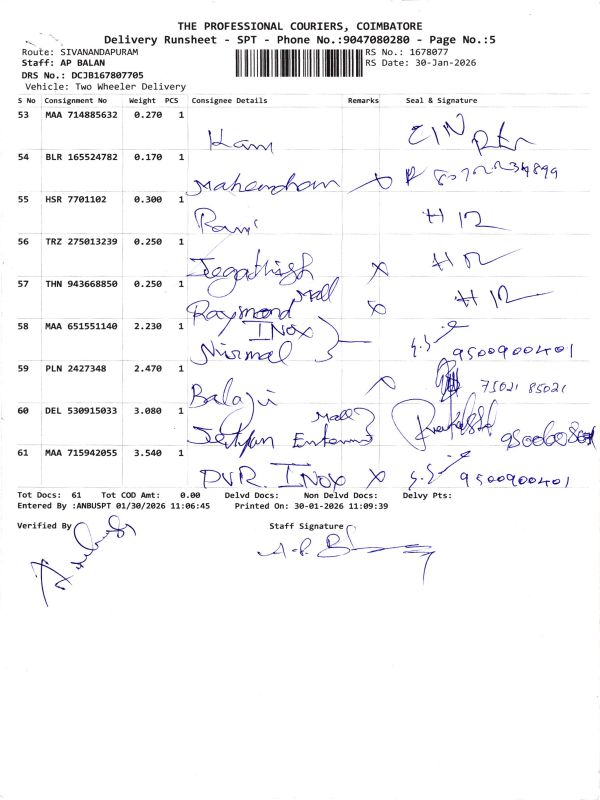 THE PROFESSIONAL COURIERS, COIMBATORE
Delivery Runsheet - SPT - Phone No.:9047080280 - Page No.:5
Route: SIVANANDAPURAM RS No.: 1678077
Staff: AP BALAN RS Date: 30-Jan-2026
DRS No.: DCJB167807705
Vehicle: Two Wheeler Delivery
S No Consignment No Weight PCS Consignee Details Remarks Seal & Signature
53 MAA 714885632 0.270 1
54 BLR 165524782 0.170 1
Mahendran
55 HSR 7701102 0.300 1
Rani H12
56 TRZ 275013239 0.250 1
Jegathish H12
57 THN 943668850 0.250 1
Raymond Mall H12
58 MAA 651551140 2.230 1
INOX
Nirmal 9500900401
59 PLN 2427348 2.470 1
Balaji 75021 85021
60 DEL 530915033 3.080 1
Mall
61 MAA 715942055 3.540 1
PVR. INOX X 9500900401
Tot Docs: 61 Tot COD Amt: 0.00 Delvd Docs: Non Delvd Docs: Delvy Pts:
Entered By :ANBUSPT 01/30/2026 11:06:45 Printed On: 30-01-2026 11:09:39
Verified By Staff Signature
A.P.